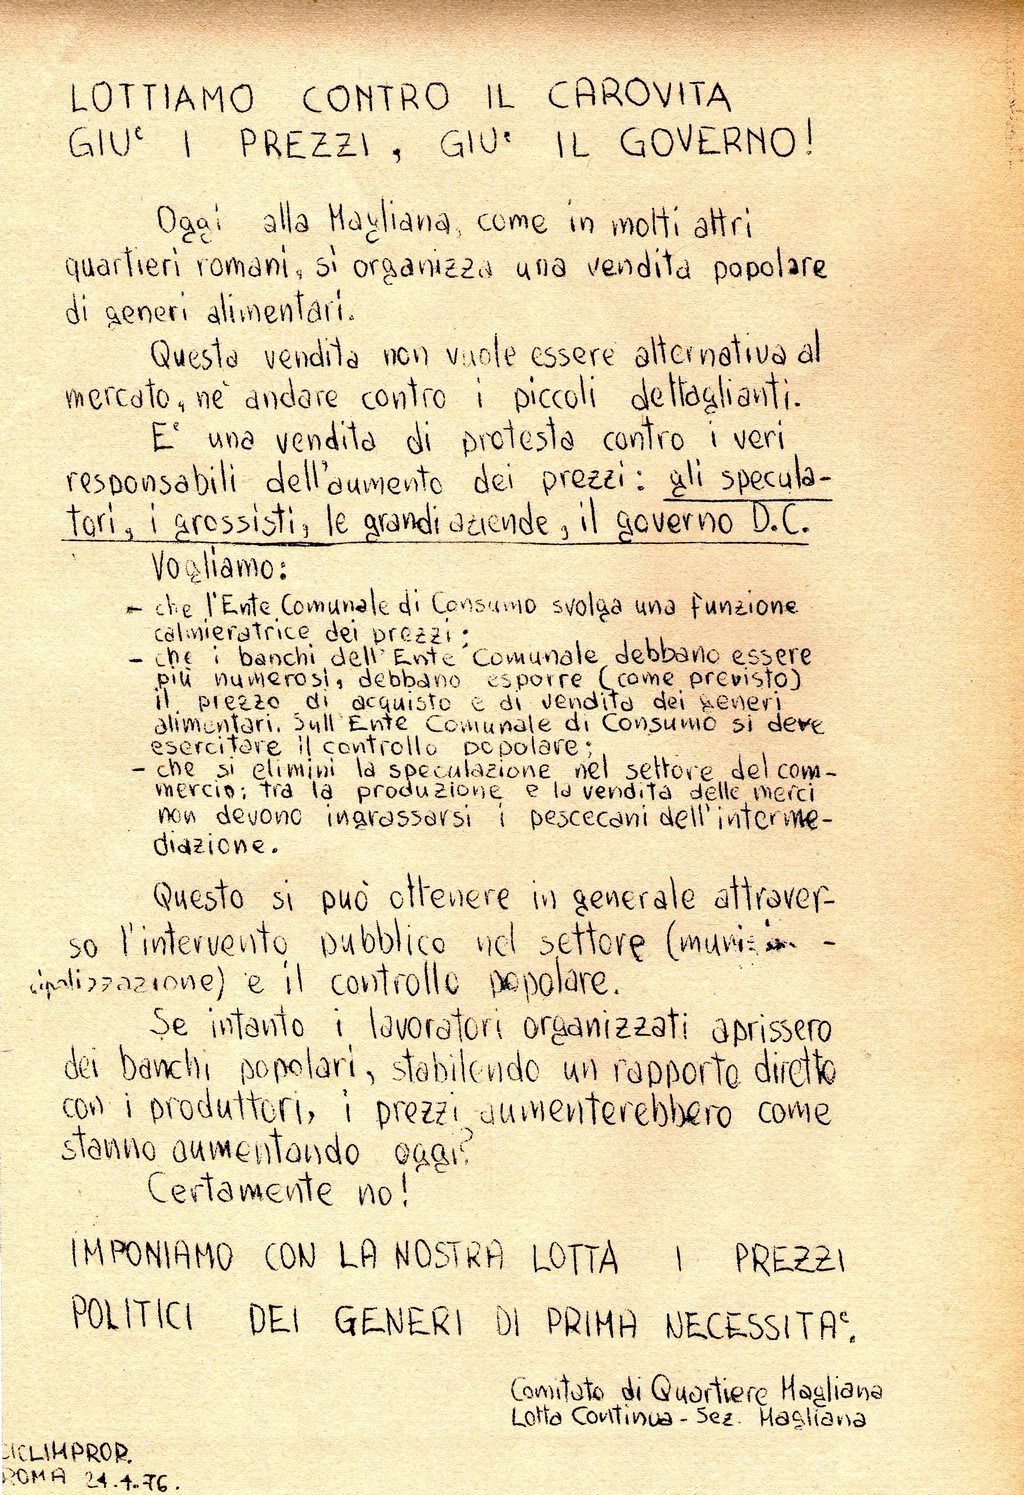 LOTTIAMO CONTRO IL CAROVITA
GIU' I PREZZI, GIU' IL GOVERNO!
Oggi alla Magliana, come in molti altri
quartieri romani, si organizza una vendita popolare
di generi alimentari.
Questa vendita non vuole essere alternativa al
mercato, nè andare contro i piccoli dettaglianti.
E' una vendita di protesta contro i veri
responsabili dell'aumento dei prezzi: gli specula-
tori, i grossisti, le grandi aziende, il governo D.C.
Vogliamo:
- che l'Ente Comunale di Consumo svolga una funzione
calmieratrice dei prezzi;
- che i banchi dell'Ente Comunale debbano essere
più numerosi, debbano esporre (come previsto)
il prezzo di acquisto e di vendita dei generi
alimentari. Sull'Ente Comunale di Consumo si deve
esercitare il controllo popolare;
- che si elimini la speculazione nel settore del com-
mercio; tra la produzione e la vendita delle merci
non devono ingrassarsi i pescecani dell'interme-
diazione.
Questo si può ottenere in generale attraver-
so l'intervento pubblico nel settore (muni-
cipalizzazione) e il controllo popolare.
Se intanto i lavoratori organizzati aprissero
dei banchi popolari, stabilendo un rapporto diretto
con i produttori, i prezzi aumenterebbero come
stanno aumentando oggi?
Certamente no!
IMPONIAMO CON LA NOSTRA LOTTA I PREZZI
POLITICI DEI GENERI DI PRIMA NECESSITA'.
Comitato di Quartiere Magliana
Lotta Continua - Sez. Magliana
CICLIMPROP.
ROMA 24.4.76.